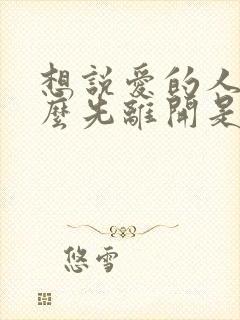 想說愛的人
麼先離開是
悠雪